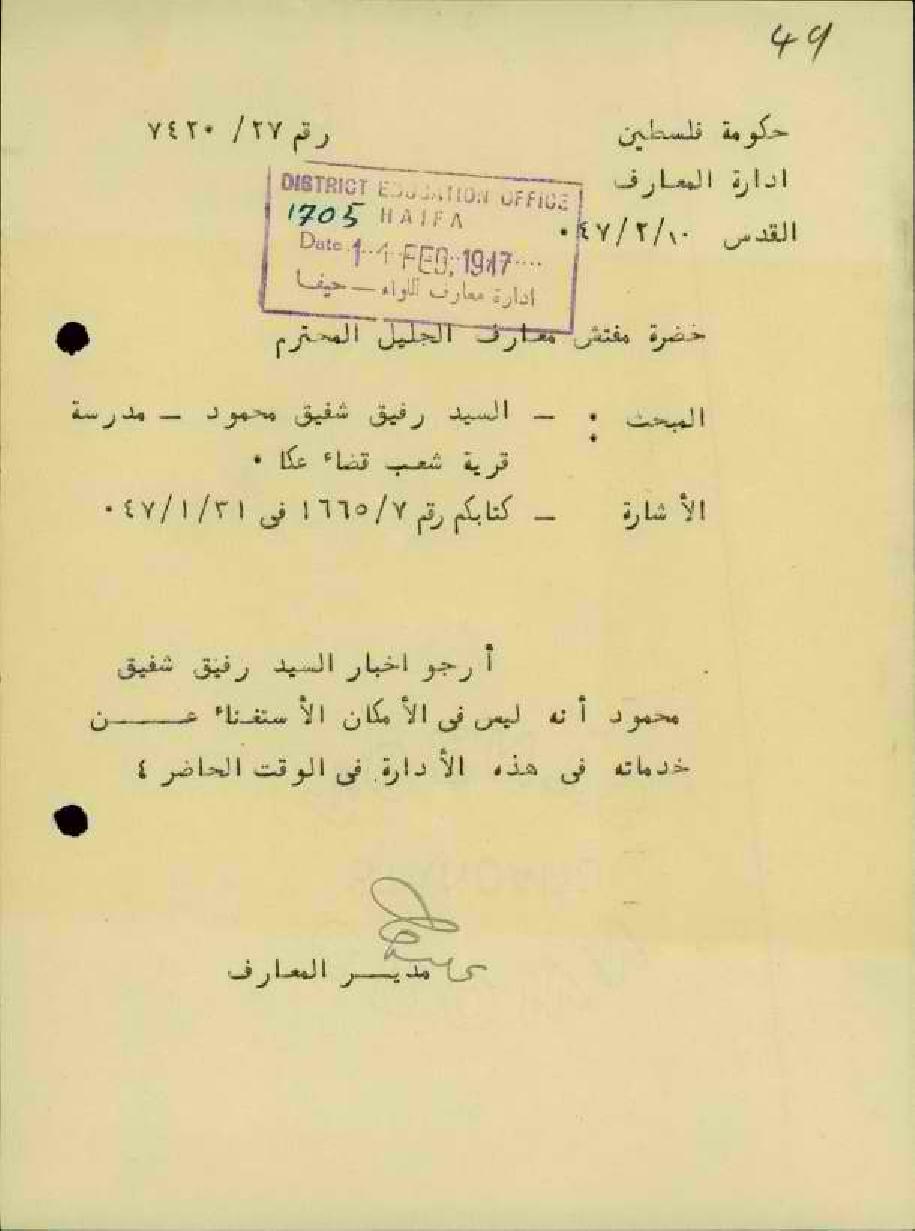 49
حكومة فلسطين
رقم ٢٧/ ٧٤٢٠
ادارة المعارف
القدس ٤٧/٢/١٠.
DISTRICT EDUCATION OFFICE
1705 HAIFA
Date 11 FEB. 1947
ادارة معارف اللواء — حيفا
حضرة مفتش معارف الجليل المحترم
المبحث : - السيد رفيق شفيق محمود - مدرسة
قرية شعب قضاء عكا .
الأشارة - كتابكم رقم ١٦٦٥/٧ فى ٤٧/١/٣١.
أرجو اخبار السيد رفيق شفيق
محمود أنه ليس فى الأمكان الأستغناء عن
خدماته فى هذه الأدارة فى الوقت الحاضر ٤
مديـر المعارف